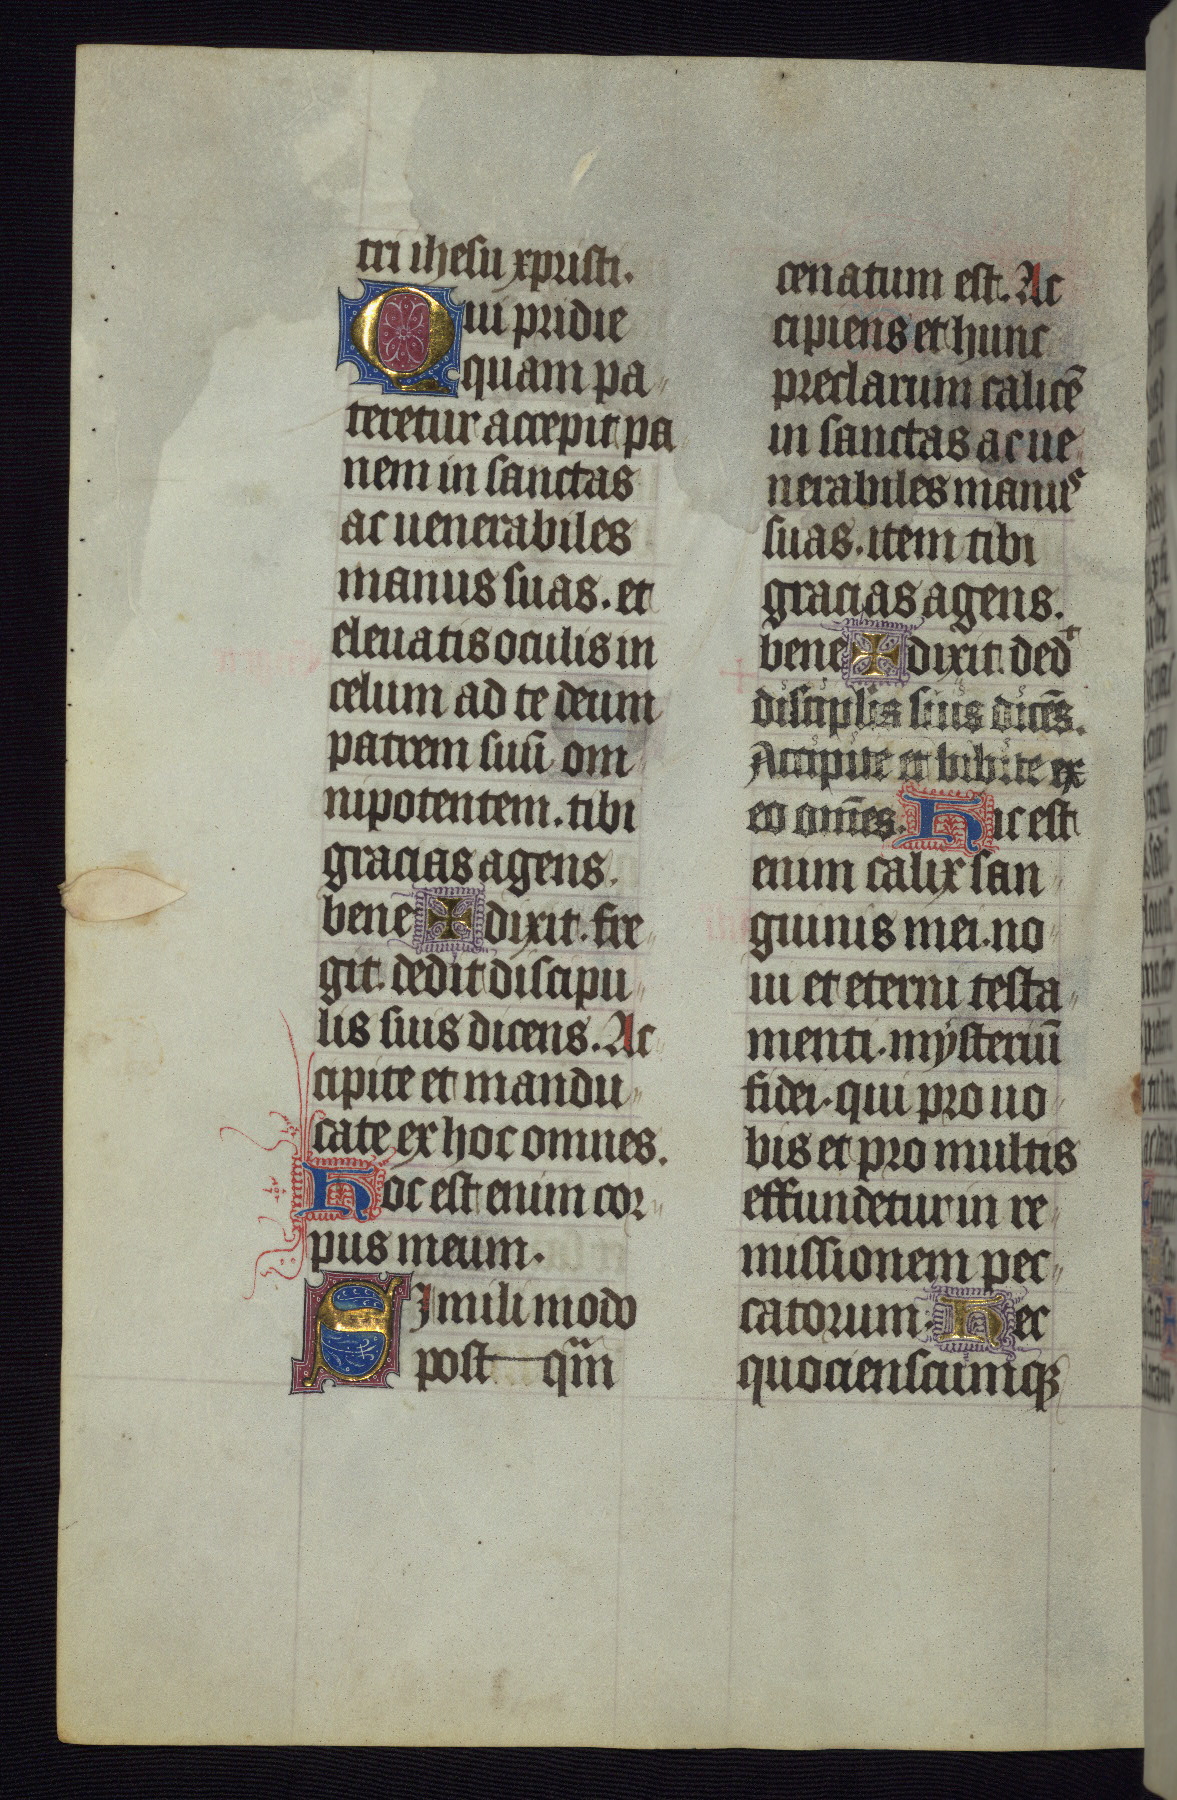 tri ihesu xpristi.
Qui pridie
quam pa
teretur accepit pa
nem in sanctas
ac uenerabiles
manus suas. et
eleuatis oculis in
celum ad te deum
patrem suū om
nipotentem. tibi
gracias agens.
bene ✠ dixit. fre
git. dedit discipu
lis suis dicens. Ac
cipite et mandu
cate ex hoc omnes.
Hoc est enim cor
pus meum.
Simili modo
post qm̄
cenatum est. Ac
cipiens et hunc
preclarum calicē
in sanctas ac ue
nerabiles manus
suas. item tibi
gracias agens.
bene ✠ dixit. dedt
disciplis suis dicēs.
Accipite et bibite ex
eo om̄es. Hic est
enim calix san
guinis mei. no
ui et eterni testa
menti. mysteriū
fidei. qui pro uo
bis et pro multis
effundetur in re
missionem pec
catorum. Hec
quocienscumqꝫ